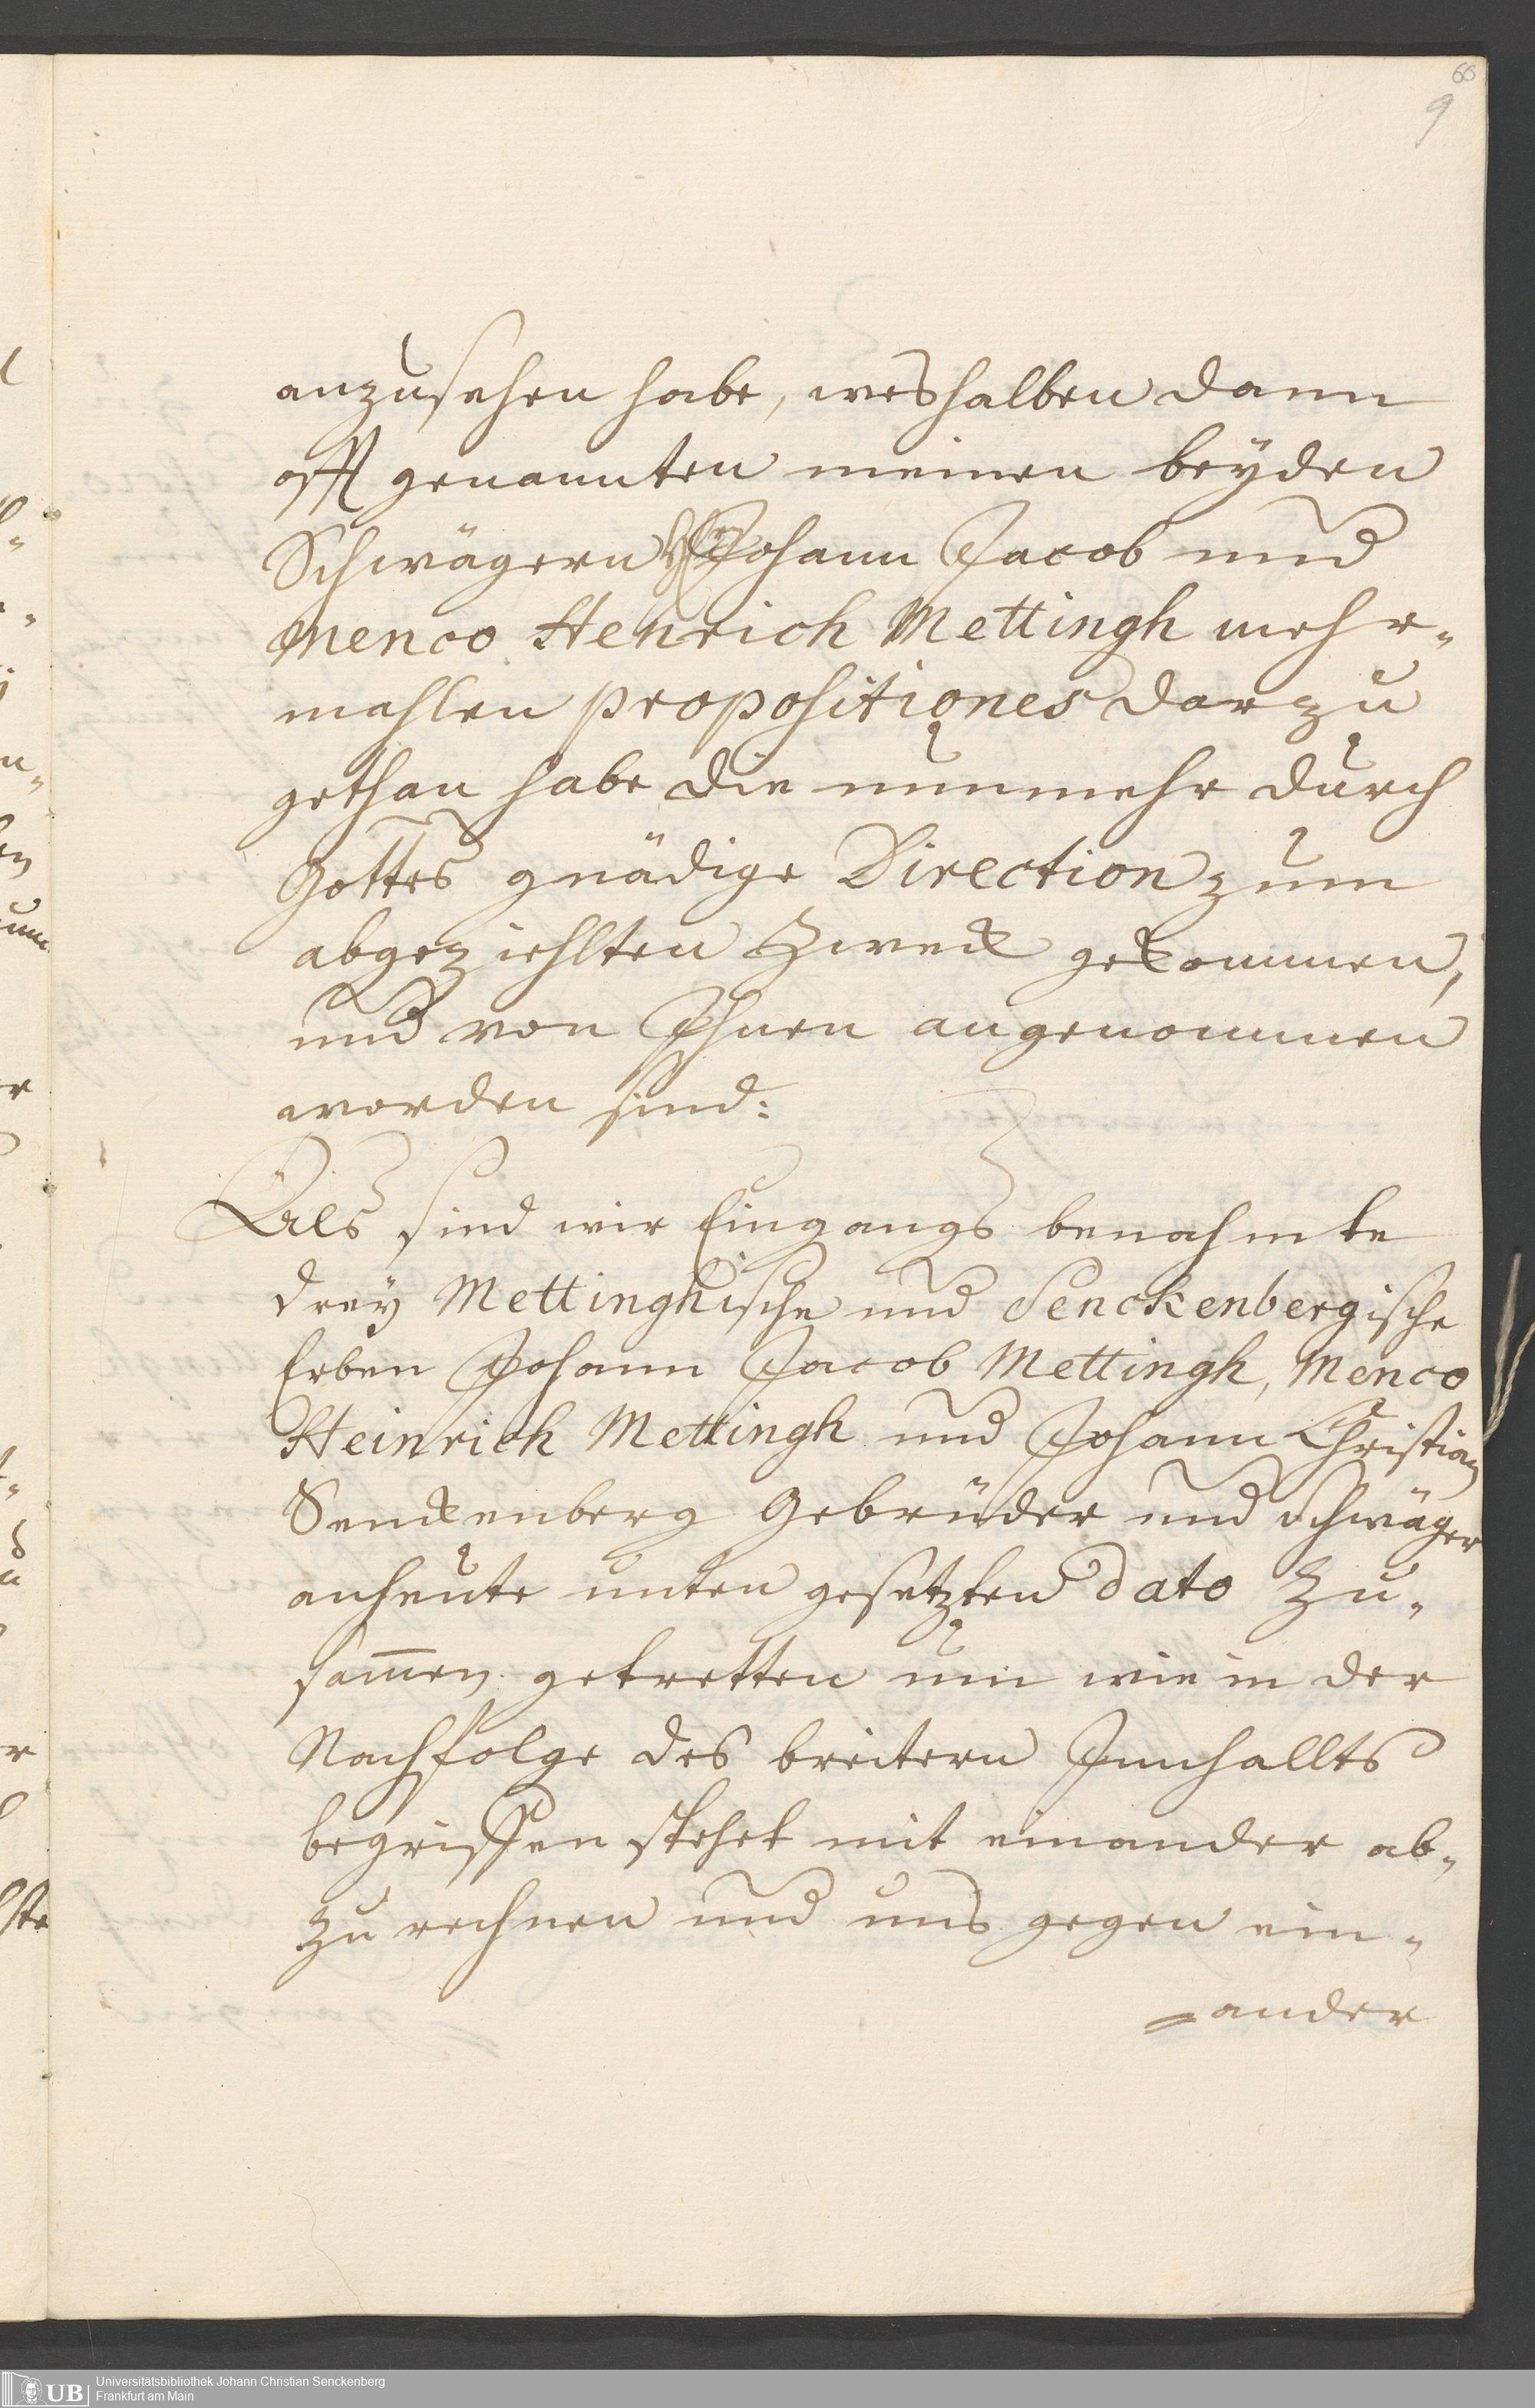 66
9
anzusehen habe, weshalben dann
offt genannten meinen beyden
Schwägern Johann Jacob und
Menco Henrich Mettingh mehr-
mahlen propositiones darzu
gethan habe die nunmehr durch
Gottes gnädige Direction zum
abgeziehlten Zweck gekommen,
und von Ihnen angenommen
worden sind:
Als sind wir Eingangs benahmte
drey Mettinghische und Senckenbergische
Erben Johann Jacob Mettingh, Menco
Heinrich Mettingh und Johann Christian
Senckenberg Gebrüder und Schwäger
anheute unten gesetzten dato zu-
sam̅en getretten um wie in der
Nachfolge des breitern Innhallts
begriffen stehet mit einander ab-
zu rechnen und uns gegen ein-
=ander
UB
Universitätsbibliothek Johann Christian Senckenberg
Frankfurt am Main